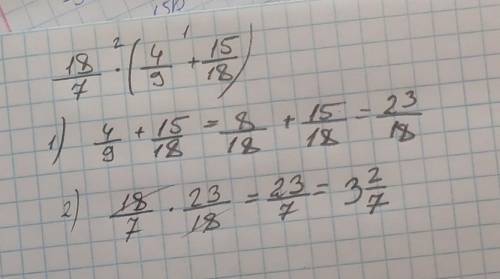 18/7 · (4/9 + 15/18)
1) 4/9 + 15/18 = 8/18 + 15/18 = 23/18
2) 18/7 · 23/18 = 23/7 = 3 2/7